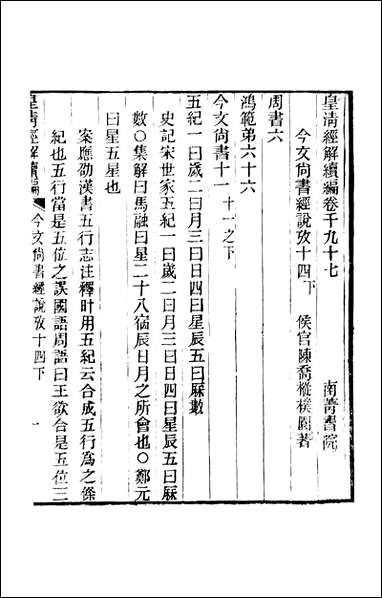 皇淸經解續編卷千九十七
南菁書院
今文尙書經說攷十四下
侯官陳喬樅樸園著
周書六
鴻範弟六十六
今文尙書十一 十一之下
五紀一曰歲二曰月三曰日四曰星辰五曰厤數
史記宋世家五紀一曰歲二曰月三曰日四曰星辰五曰厤
數〇集解曰馬融曰星二十八宿辰日月之所會也〇鄭元
曰星五星也
案應劭漢書五行志注釋旪用五紀云合成五行爲之條
紀也五行當是五位之誤國語周語曰王欲合是五位三
皇淸經解續編
今文尙書經說攷十四下
一